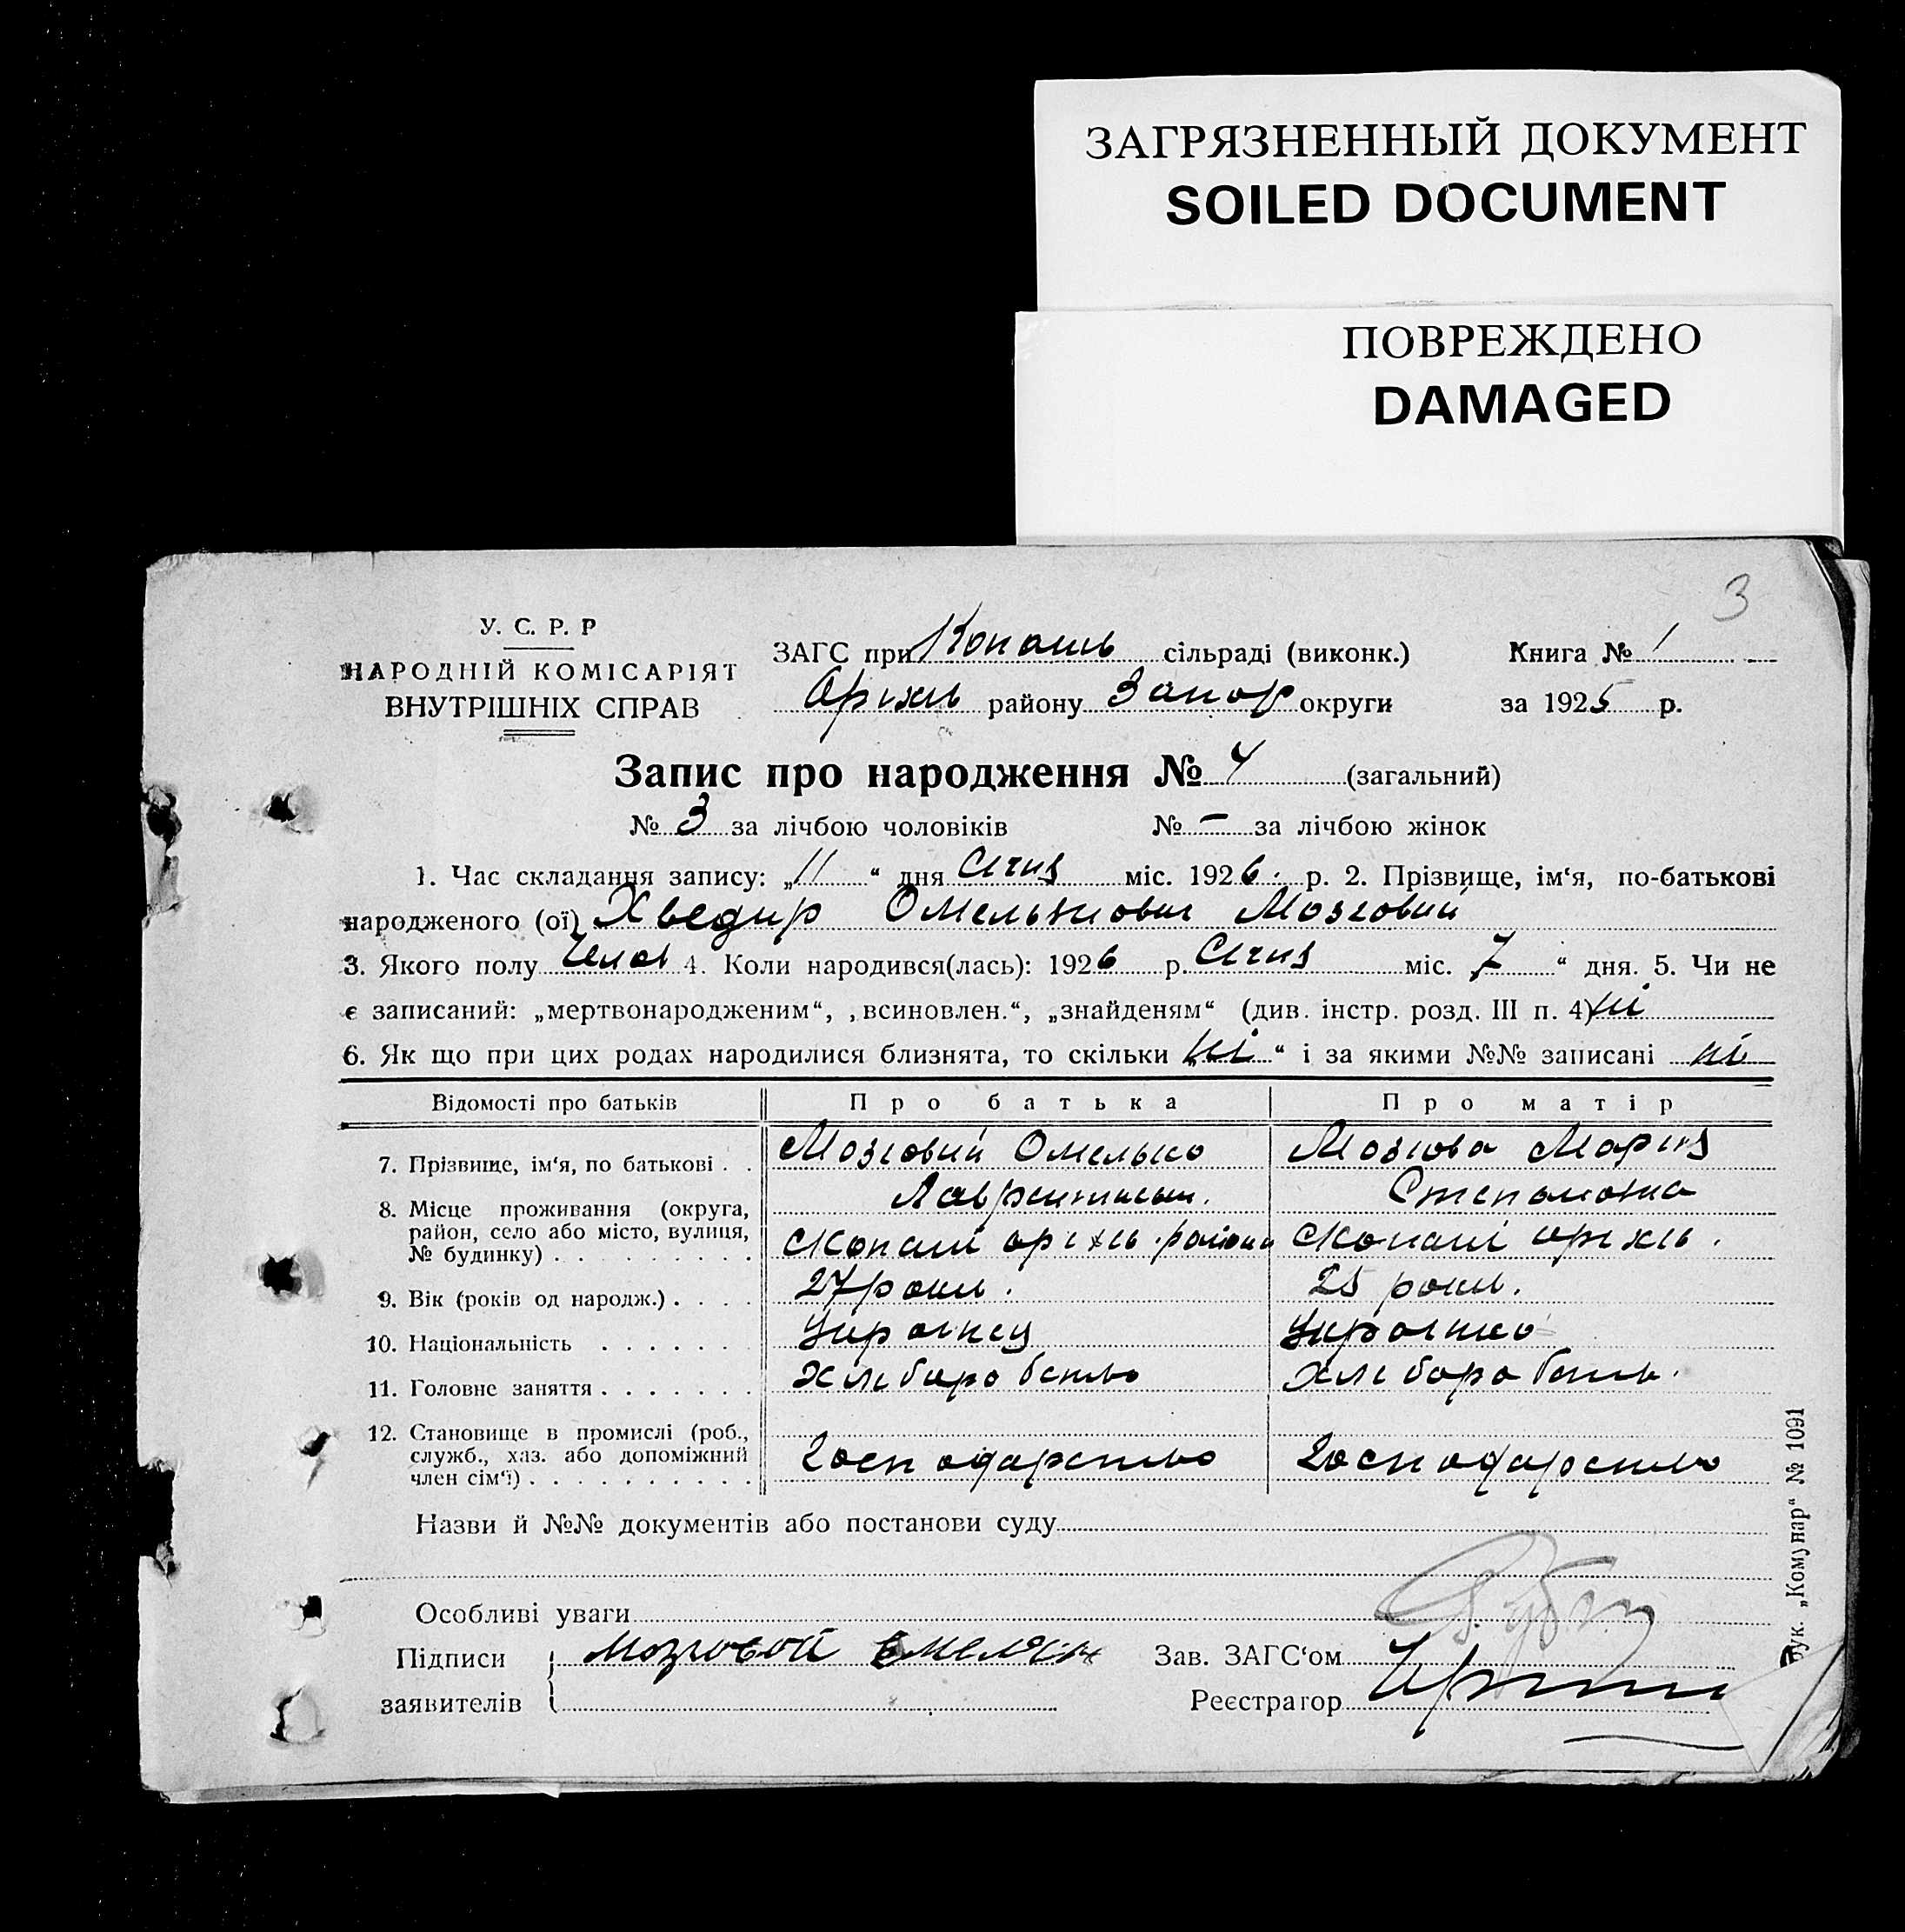 ЗАГРЯЗНЕННЫЙ ДОКУМЕНТ
SOILED DOCUMENT
ПОВРЕЖДЕНО
DAMAGED
3
У. С. Р. Р
НАРОДНІЙ КОМІСАРІЯТ
ВНУТРІШНІХ СПРАВ
ЗАГС при Копань сільраді (виконк.) Книга № 1
Оріхів району Запор округи за 1925 р.
Запис про народження № 4 (загальний)
№ 3 за лічбою чоловіків № - за лічбою жінок
1. Час складання запису: „11“ дня Січня міс. 1926. р. 2. Прізвище, ім‘я, по-батькові
народженого (ої) Хведир Омелькович Мозговий
3. Якого полу Чол 4. Коли народився(лась): 1926 р. Січня міс. 7 “ дня. 5. Чи не
є записаний: „мертвонародженим“, „всиновлен.“, „знайденям“ (див. інстр. розд. III п. 4) ні
6. Як що при цих родах народилися близнята, то скільки „ні“ і за якими №№ записані ні
Відомості про батьків Про батька Про матір
7. Прізвище, ім‘я, по батькові . . Мозговий Омелько Мозгова Мария
Степановна
8. Місце проживання (округа,
район, село або місто, вулиця,
№ будинку) . . . . . . . . Скопані оріхів. району Скопані оріхів.
9. Вік (років од народж.) . . . . 27 роки. 25 роки.
10. Національність . . . . . . . Українец Українка
11. Головне заняття . . . . . . . хліборобство хлібороб
12. Становище в промислі (роб.,
служб., хаз. або допоміжний
член сім‘ї) . . . . . . . . . . господарство господарство
Назви й №№ документів або постанови суду
Особливі уваги
Підписи Мозговой Емельян Зав. ЗАГС‘ом
заявителів Реєстратор
Друк. „Комунар“ № 1091